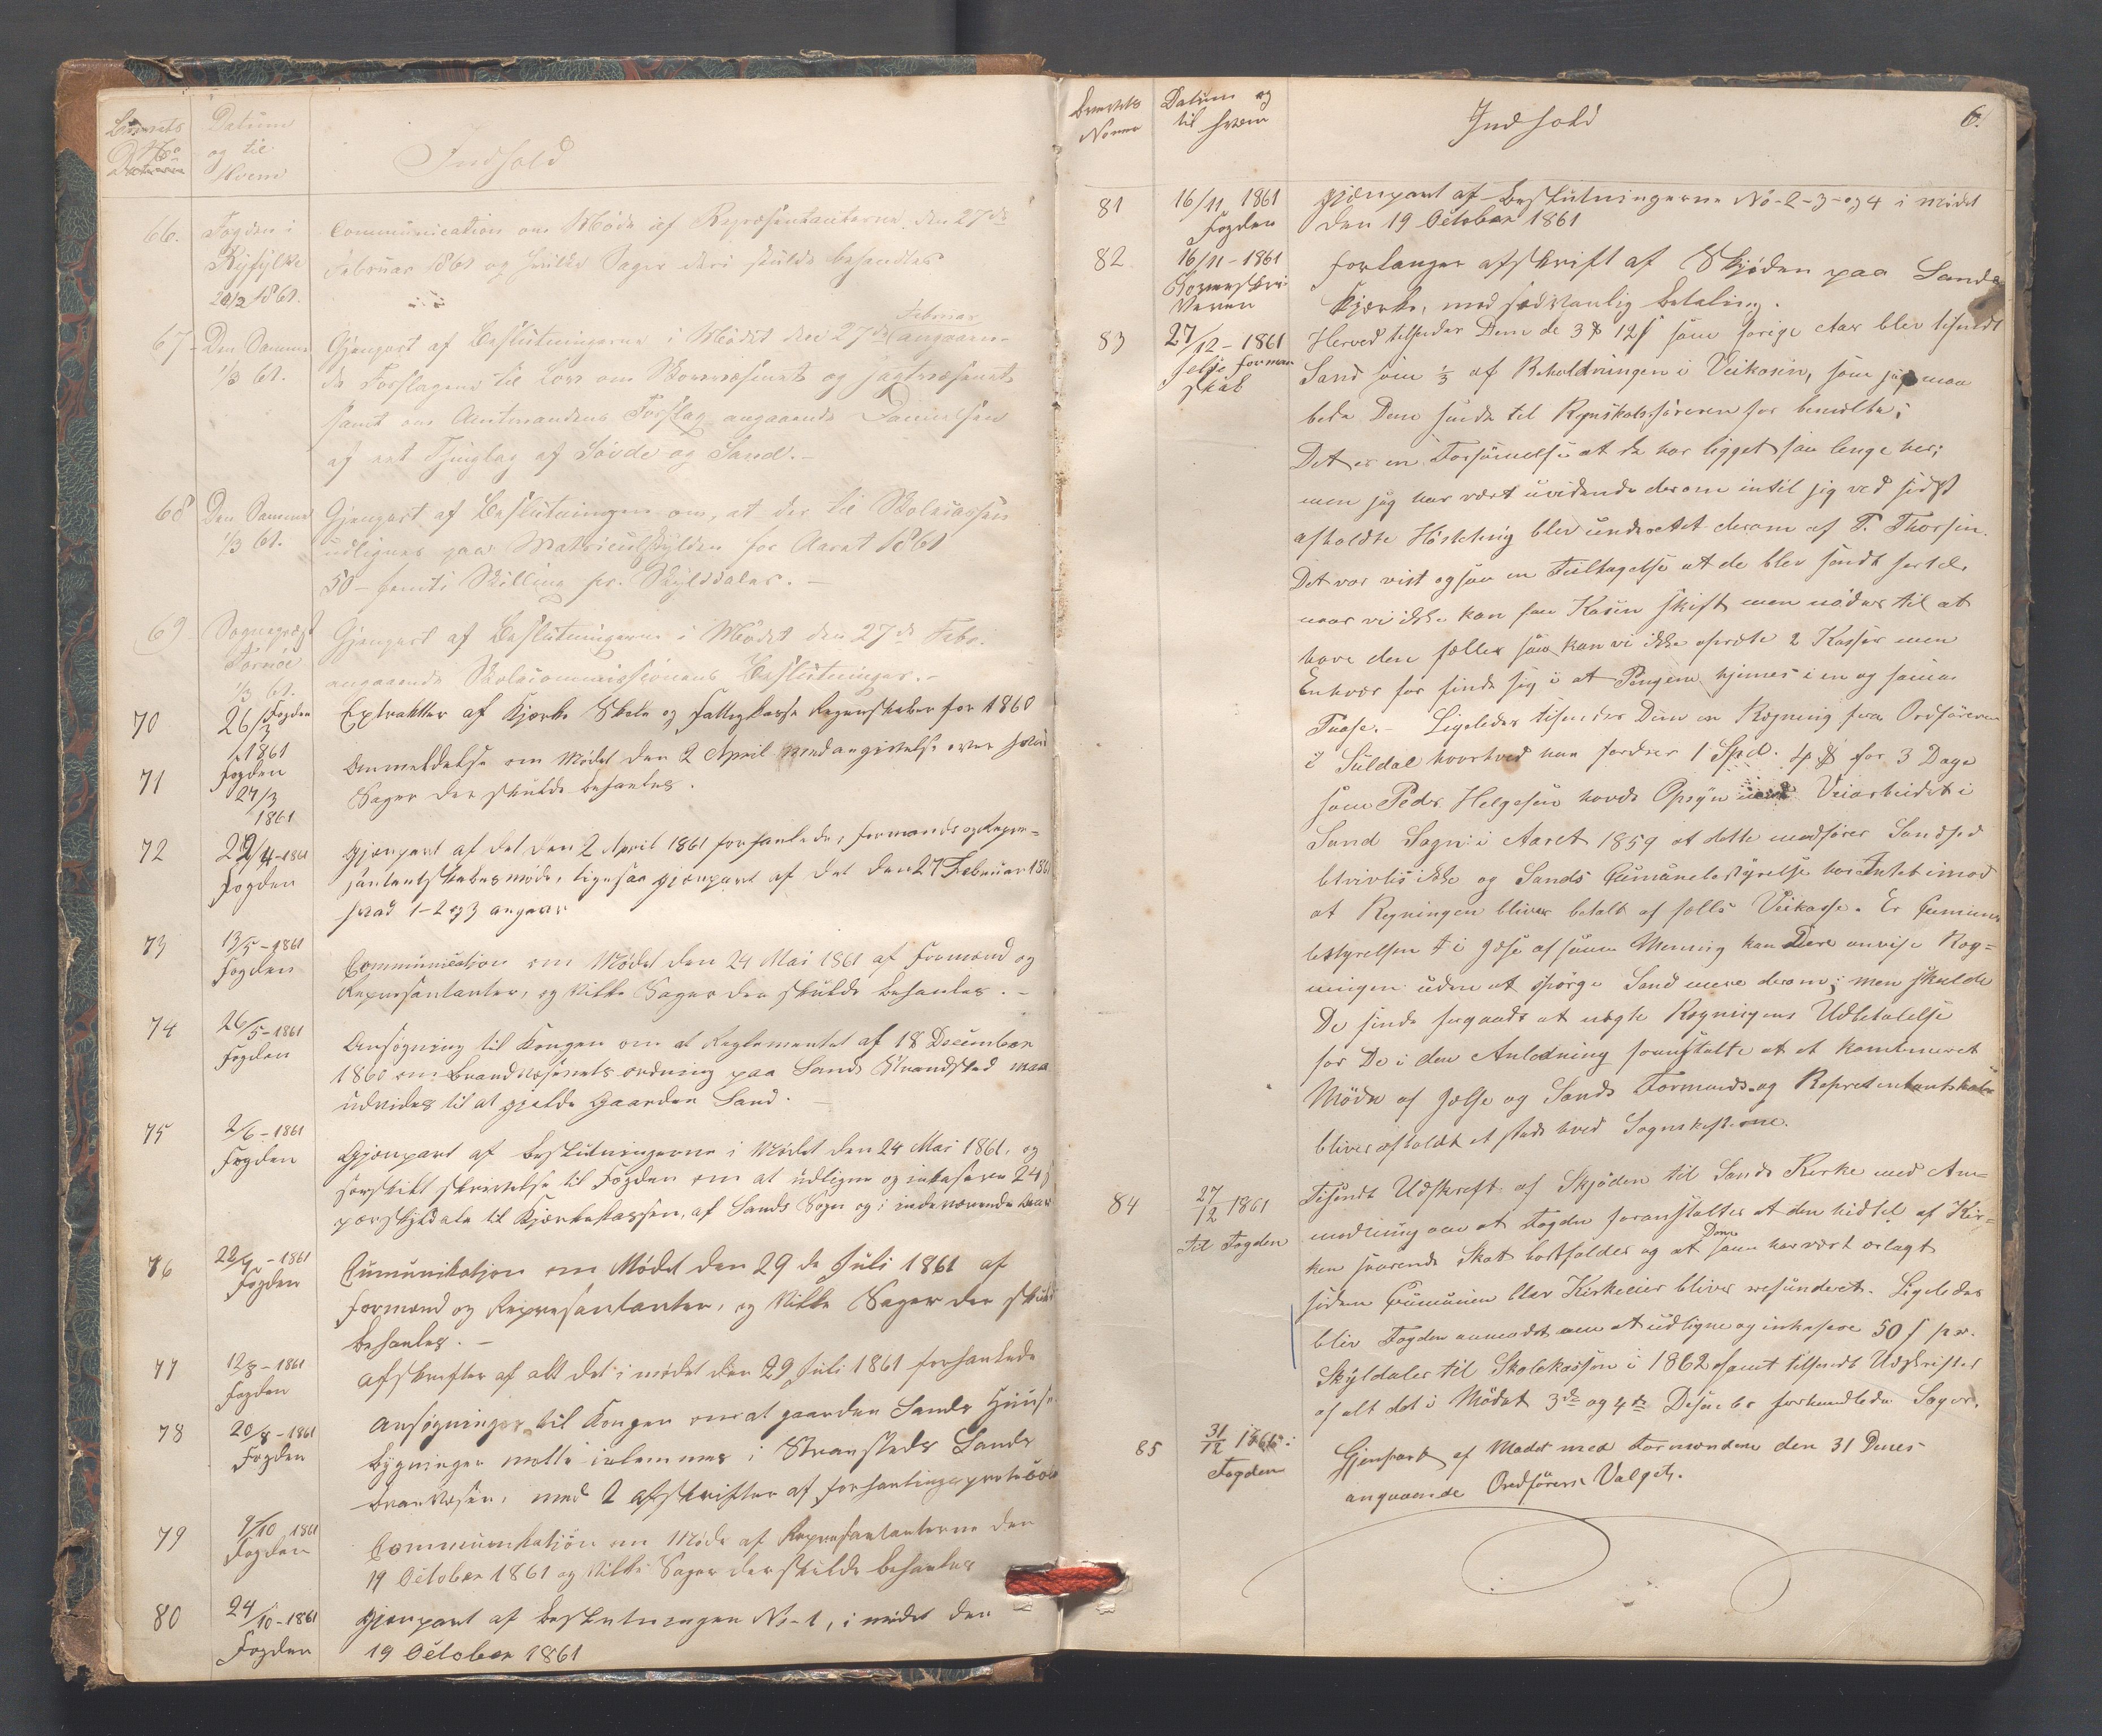 Brevets No
Datum og til Hvem
Indhold
66. Fogden i Ryfylke 20/2 1861.
Communication om Møde af Repræsentanterne den 27de
Februar 1861 og hvilke Sager deri skulde behandles
67 Den Samme 1/3 61.
Gjenpart af Beslutningerne i Mødet den 27de Februar angaaen-
de Forslagene til Lov om Skovvæsenet og jagtvæsenet
samt om Amtmandens Forslag angaaende Dannelsen
af eet Thinglag af Søvde og Sand.-
68 Den Samme 1/3 61.
Gjenpart af Beslutningen om, at der til Skolecassen
udlignes paa Matriculskylden for Aaret 1861
50 - femti Skilling pr. Skylddaler. -
69 Sognepræst 1/3 61.
Gjenpart af Beslutningerne i Mødet den 27de Febr.
angaaende Skolecommissionens Beslutninger.-
70 Fogden 26/3 1861
Extrakter af Kjerke Skole og Fattigkasse Regenskaber for 1860
71 Fogden 27/3 1861
Anmeldelse om Mødet den 2 April med angivelse over hvad
Sager der skulde behanles.
72 22/4-1861 Fogden
Gjenpart af det den 2 April 1861 forhanlede, formands og Repre-
santantskabesmøde, ligesaa gjenpart af det den 27 Februar 1861
hvad 1-2 og 3 angaar
73 13/5-1861 Fogden
Communication om Mødet den 24 Mai 1861 af Formænd og
Represantanter, og vilke Sager der skulde behanles. -
74 26/5-1861 Fogden
Ansøgning til Kongen om at Reglementet af 18 December
1860 om Brandvæsenets ordning paa Sands Strandsted maa
udvides til at gjelde Gaarden Sand. -
75 2/6-1861 Fogden
Gjenpart af Beslutningerne i Mødet den 24 Mai 1861, og
særskilt skrivelse til Fogden om at udligne og inkasere 24 ſ
pær skyldale til Kjerkekassen, af Sands Sogn og i indeværende Aar
76 22/7-1861 Fogden
Cumunikation om Mødet den 29 de Juli 1861 af
formænd og Represantanter, og vilke Sager der skulde
behanles. -
77 12/8-1861 Fogden
Afskrifter af alt det i mødet den 29 Juli 1861 forhanlede
78 20/8-1861 Fogden
Ansøgninger til Kongen om at gaarden Sands Huuse
bygninger motte inlemmes i Stransteds Sands
Branvæsen, med 2 afskrifter af forhanlingsprotocol
79 9/10 1861 Fogden
Communikation om Møde af Represantanterne den
19 October 1861 og vilke Sager der skulde behanles
80 24/10-1861 Fogden
Gjenpart af beslutningen No-1, i mødet den
19 October 1861
Brevets Nomer
Datum og til hvem
Indhold
6.
81 16/11 1861 Fogden
Gjenpart af Beslutningerne No-2-3-og 4 i mødet
den 19 October 1861
82 16/11-1861 Sorenskriveren
Forlanger afskrift af Skjøden paa Sands
Kjerke, mod sedvanlig betaling.
83 27/12-1861 Jelse formanskab
Herved tilsender Dem de 3 $ 12 ſ som forige Aar blev tilsendt
Sand som 1/3 af Beholdningen i Veikasen, som jeg maa
bede Dem sende til Regnskabsføreren for benevte;
Det er en Forsømelse at de har ligget saa lenge her;
men jeg har vært uvidende derom intil jeg ved sidst
afholdte Høstthing blev underrettet derom af T. Thorsen.
Det var vist ogsaa en Feiltagelse at de blev sendt
naar vi ikke kan faa Kasen skift men nødes til at
have den fælles saa kan vi ikke oprette 2 Kasser men
Enhver faa finde sig i at Pengene gjemes i en og samme
Ligeledes tilsendes Dem en Regning fra Ordføreren
i Suldal hvorved han fordrer 1 Spd. 4 $ for 3 Dage
som Peder Helgesen havde Opsyn med Veiarbeidet i
Sand Sogn i Aaret 1859 at dette medfører Sandhed
betvivles ikke og Sands Cumunebestyrelse har Intet imod
at Regningen bliver betalt af fælles Veikasse. Er Cumune
bestyrelsen i Jelse af samme Mening kan Dere anvise Reg-
ningen uden at spørge Sand mere derom; men skulde
De finde fogaade at negte Regningens Udbetalelse
for De i den Anledning foranstalte at et kombineret
Møde af Jelse og Sands Formands og Representantskab
bliver afholdt et steds hved Sogneskift
84 27/12 1861 Til Fogden
Tilsendt Udskreft af Skjøden til Sands Kerke med An-
modning om at Fogden foranstalter at den hidtil af Kir-
ken svarende Skat bortfalder og at Dem som har vært erlagt
siden Cumunen blev Kirkeeier bliver refunderet. Ligeledes
blev Fogden anmodet om at udligne og inkasere 50 ſ pr.
Skyldaler til Skolekassen i 1862 samt tilsendt Udskrifter
af alt det i Mødet 3de og 4de Desember forhandlede Sager.
85 31/12 1861 Fogden
Gjenpart af Mødet med Formændene den 31 Decbr
angaaende Ordførers Valget.